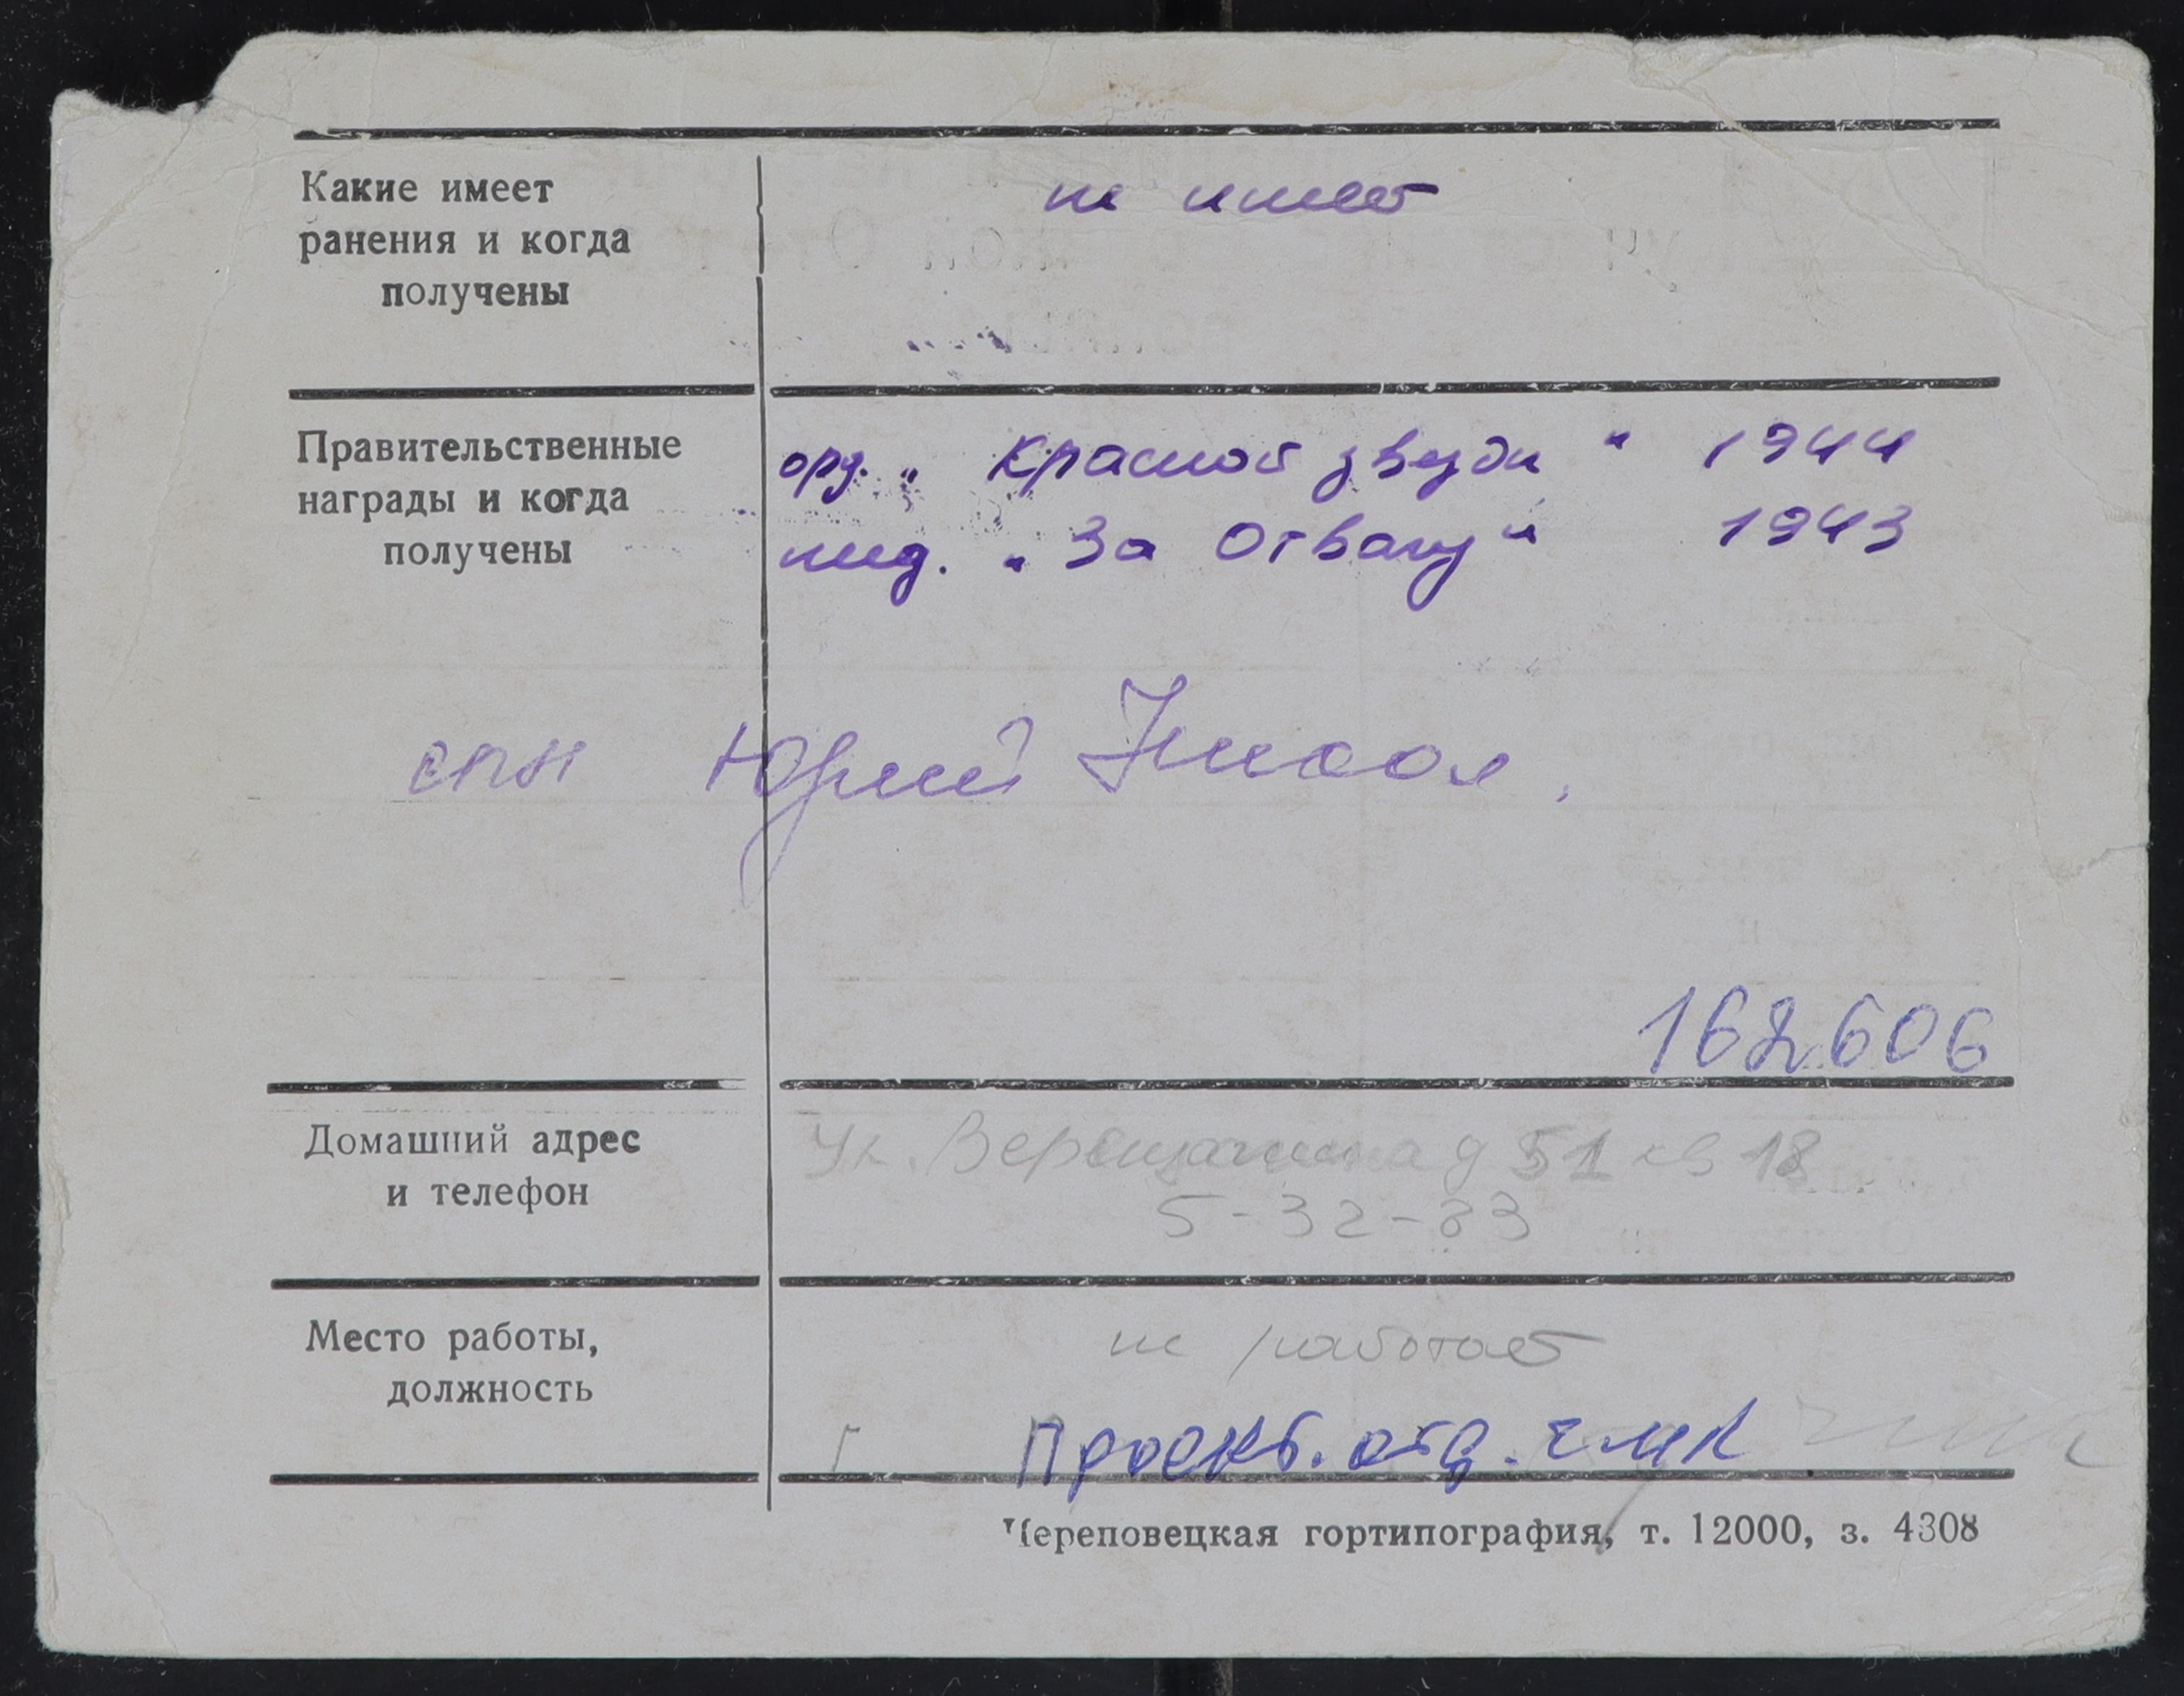 Какие имеет
ранения и когда
получены
не имеет
Правительственные
награды и когда
получены
орд. „ Красной звезды " 1944
мед. „ За Отвагу " 1943
Юрий
162606
Домашний адрес
и телефон
Ул. Верещагина д 51 кв 18
5-32-83
Место работы,
должность
не работает
Проект. отд. ЧМК
Череповецкая гортипография, т. 12000, з. 4308